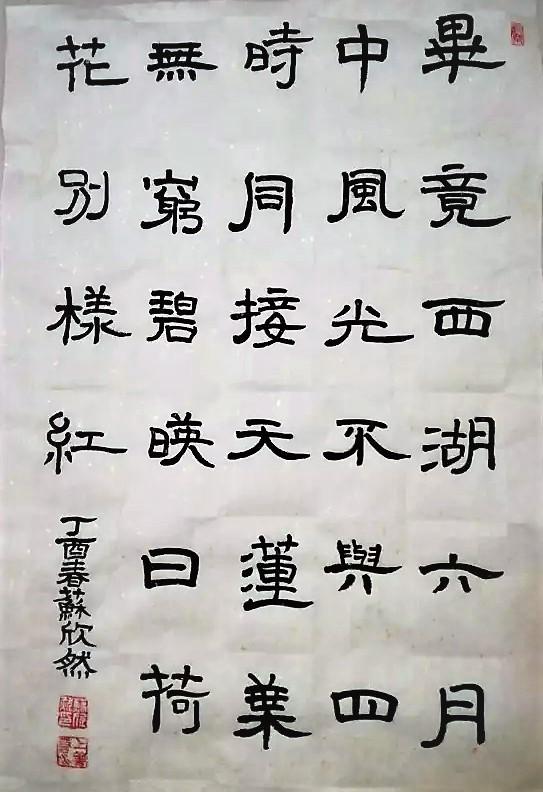 畢竟西湖六月
中風光不與四
時同接天蓮葉
無窮碧暎日荷
花別樣紅
丁酉春蘇欣然